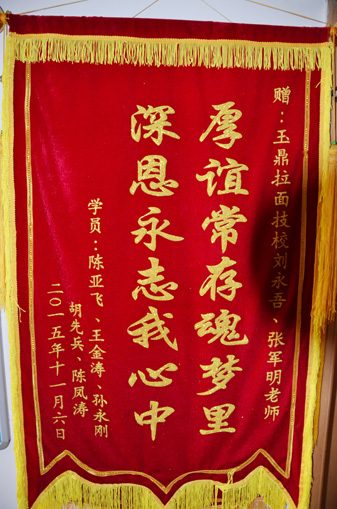 赠：玉鼎拉面技校刘永吾、张军明老师
厚谊常存魂梦里
深恩永志我心中
学员：陈亚飞、王金涛、孙永刚
胡先兵、陈凤涛
二〇一五年十一月六日